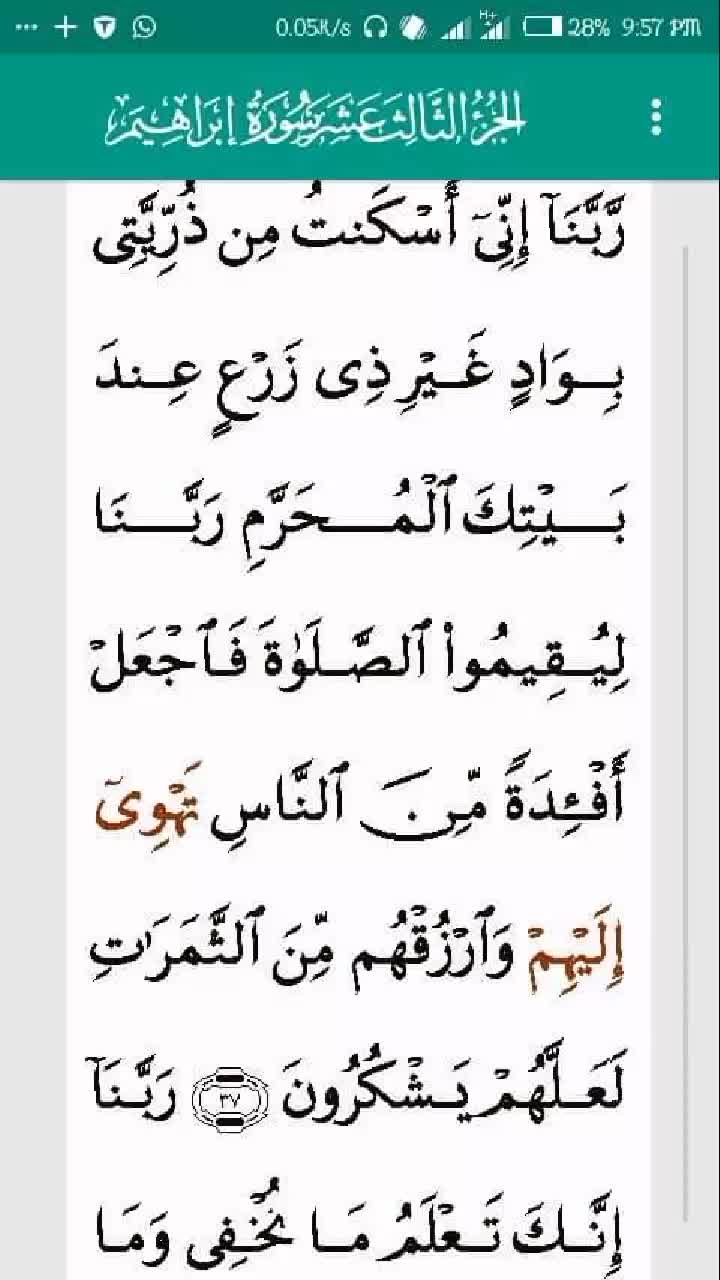 ... + 0.05K/s H+ 28% 9:57 PM
الجزء الثالث عشر سورة إبراهيم
رَّبَّنَآ إِنِّىٓ أَسْكَنتُ مِن ذُرِّيَّتِى
بِوَادٍ غَيْرِ ذِى زَرْعٍ عِندَ
بَيْتِكَ ٱلْمُحَرَّمِ رَبَّنَا
لِيُقِيمُوا۟ ٱلصَّلَوٰةَ فَٱجْعَلْ
أَفْـِٔدَةً مِّنَ ٱلنَّاسِ تَهْوِىٓ
إِلَيْهِمْ وَٱرْزُقْهُم مِّنَ ٱلثَّمَرَٰتِ
لَعَلَّهُمْ يَشْكُرُونَ ٣٧ رَبَّنَآ
إِنَّكَ تَعْلَمُ مَا نُخْفِى وَمَا